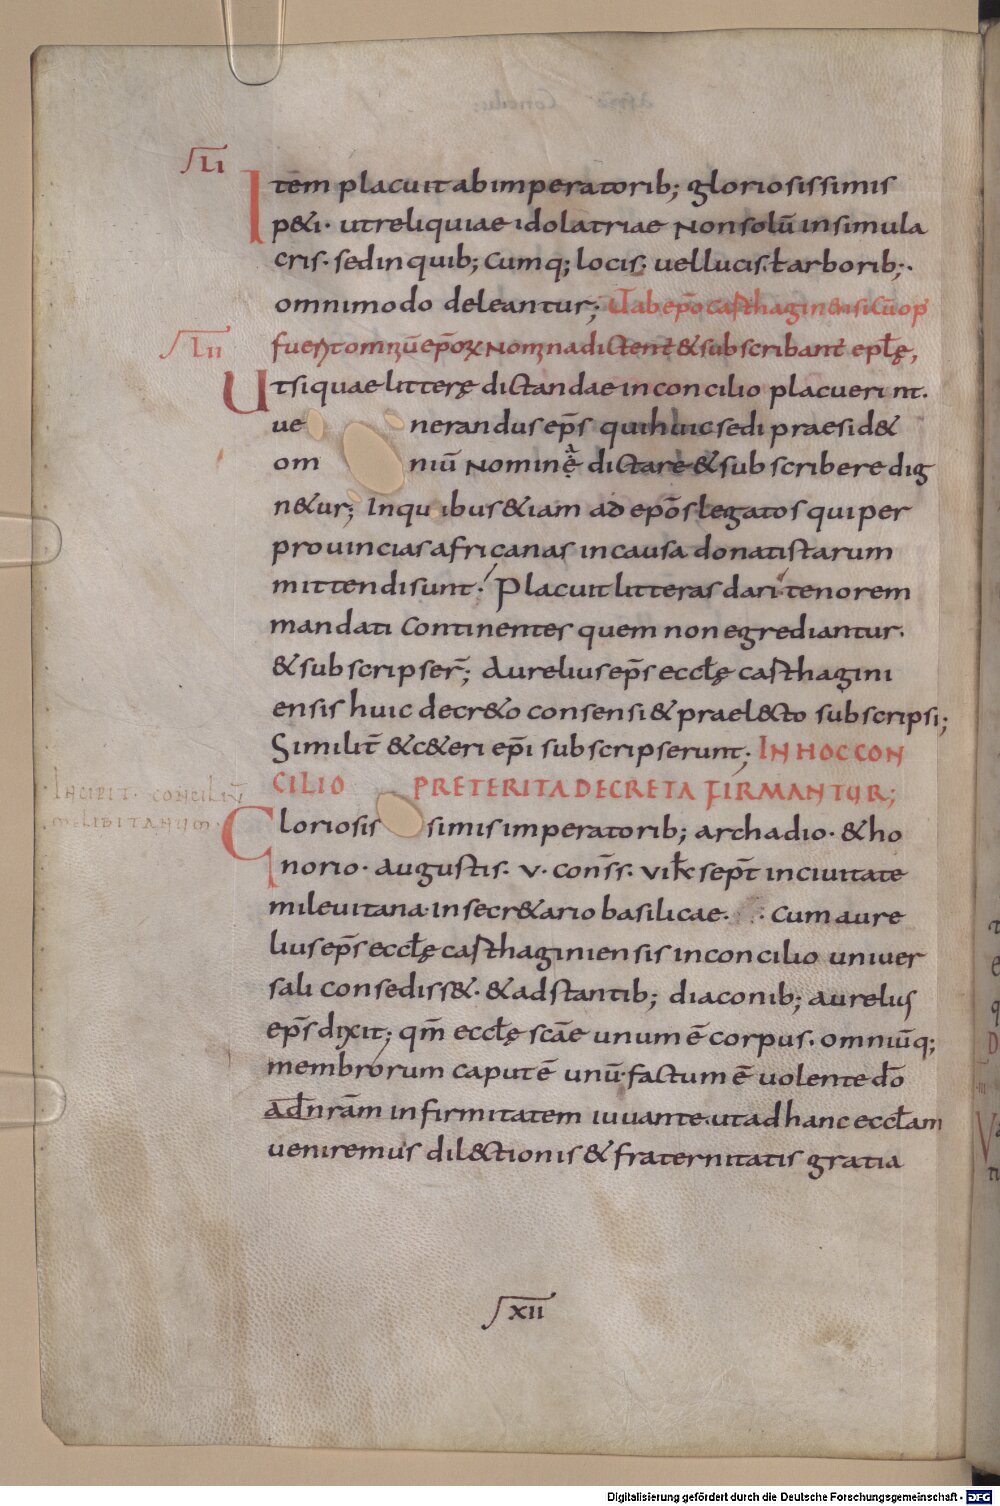 LI
Item placuit ab imperatorib; gloriosissimis
p&i· ut reliquiae idolatriae non solū in simula
cris· sed in quib; cumq; locis· uel lucis· ł arborib;·
omnimodo deleantur; Ut ab ep̄o carthaginensi cū op
LII
fuerit omniū ep̄oꝝ nomina dictent̄ & subscribant epłę,
Ut si quae litterę dictandae in concilio placuerint·
ue nerandus ep̄s qui huic sedi praesid&
om niū nominę dictare & subscribere dig
n&ur; In quibus &iam ad ep̄os legatos qui per
prouincias africanas in causa donatistarum
mittendi sunt· Placuit litteras dari tenorem
mandati continentes quem non egrediantur·
& subscripser̄; Aurelius ep̄s ecclę carthagini
ensis huic decr&o consensi & prael&to subscripsi;
Similit̄ & c&eri ep̄i subscripserunt; IN HOC CON
CILIO PRETERITA DECRETA FIRMANTUR;
INCIPIT· CONCILIŪ
MILIBITANUM·
Gloriosis simis imperatorib; archadio· & ho
norio· augustis· v· cons̄s· vi k̄ sept̄ in ciuitate
mileuitana· in secr&ario basilicae· · Cum aure
lius ep̄s ecclę carthaginiensis in concilio uniuer
sali consediss&· & adstantib; diaconib; aurelius
ep̄s dixit; qm̄ ecclę scāe unum ē corpus· omniūq;
membrorum caput ē unū· factum ē uolente dō
ad nrām infirmitatem iuuante· ut ad hanc ecclam
ueniremus dil&tionis & fraternitatis gratia
XII
Digitalisierung gefördert durch die Deutsche Forschungsgemeinschaft - DFG